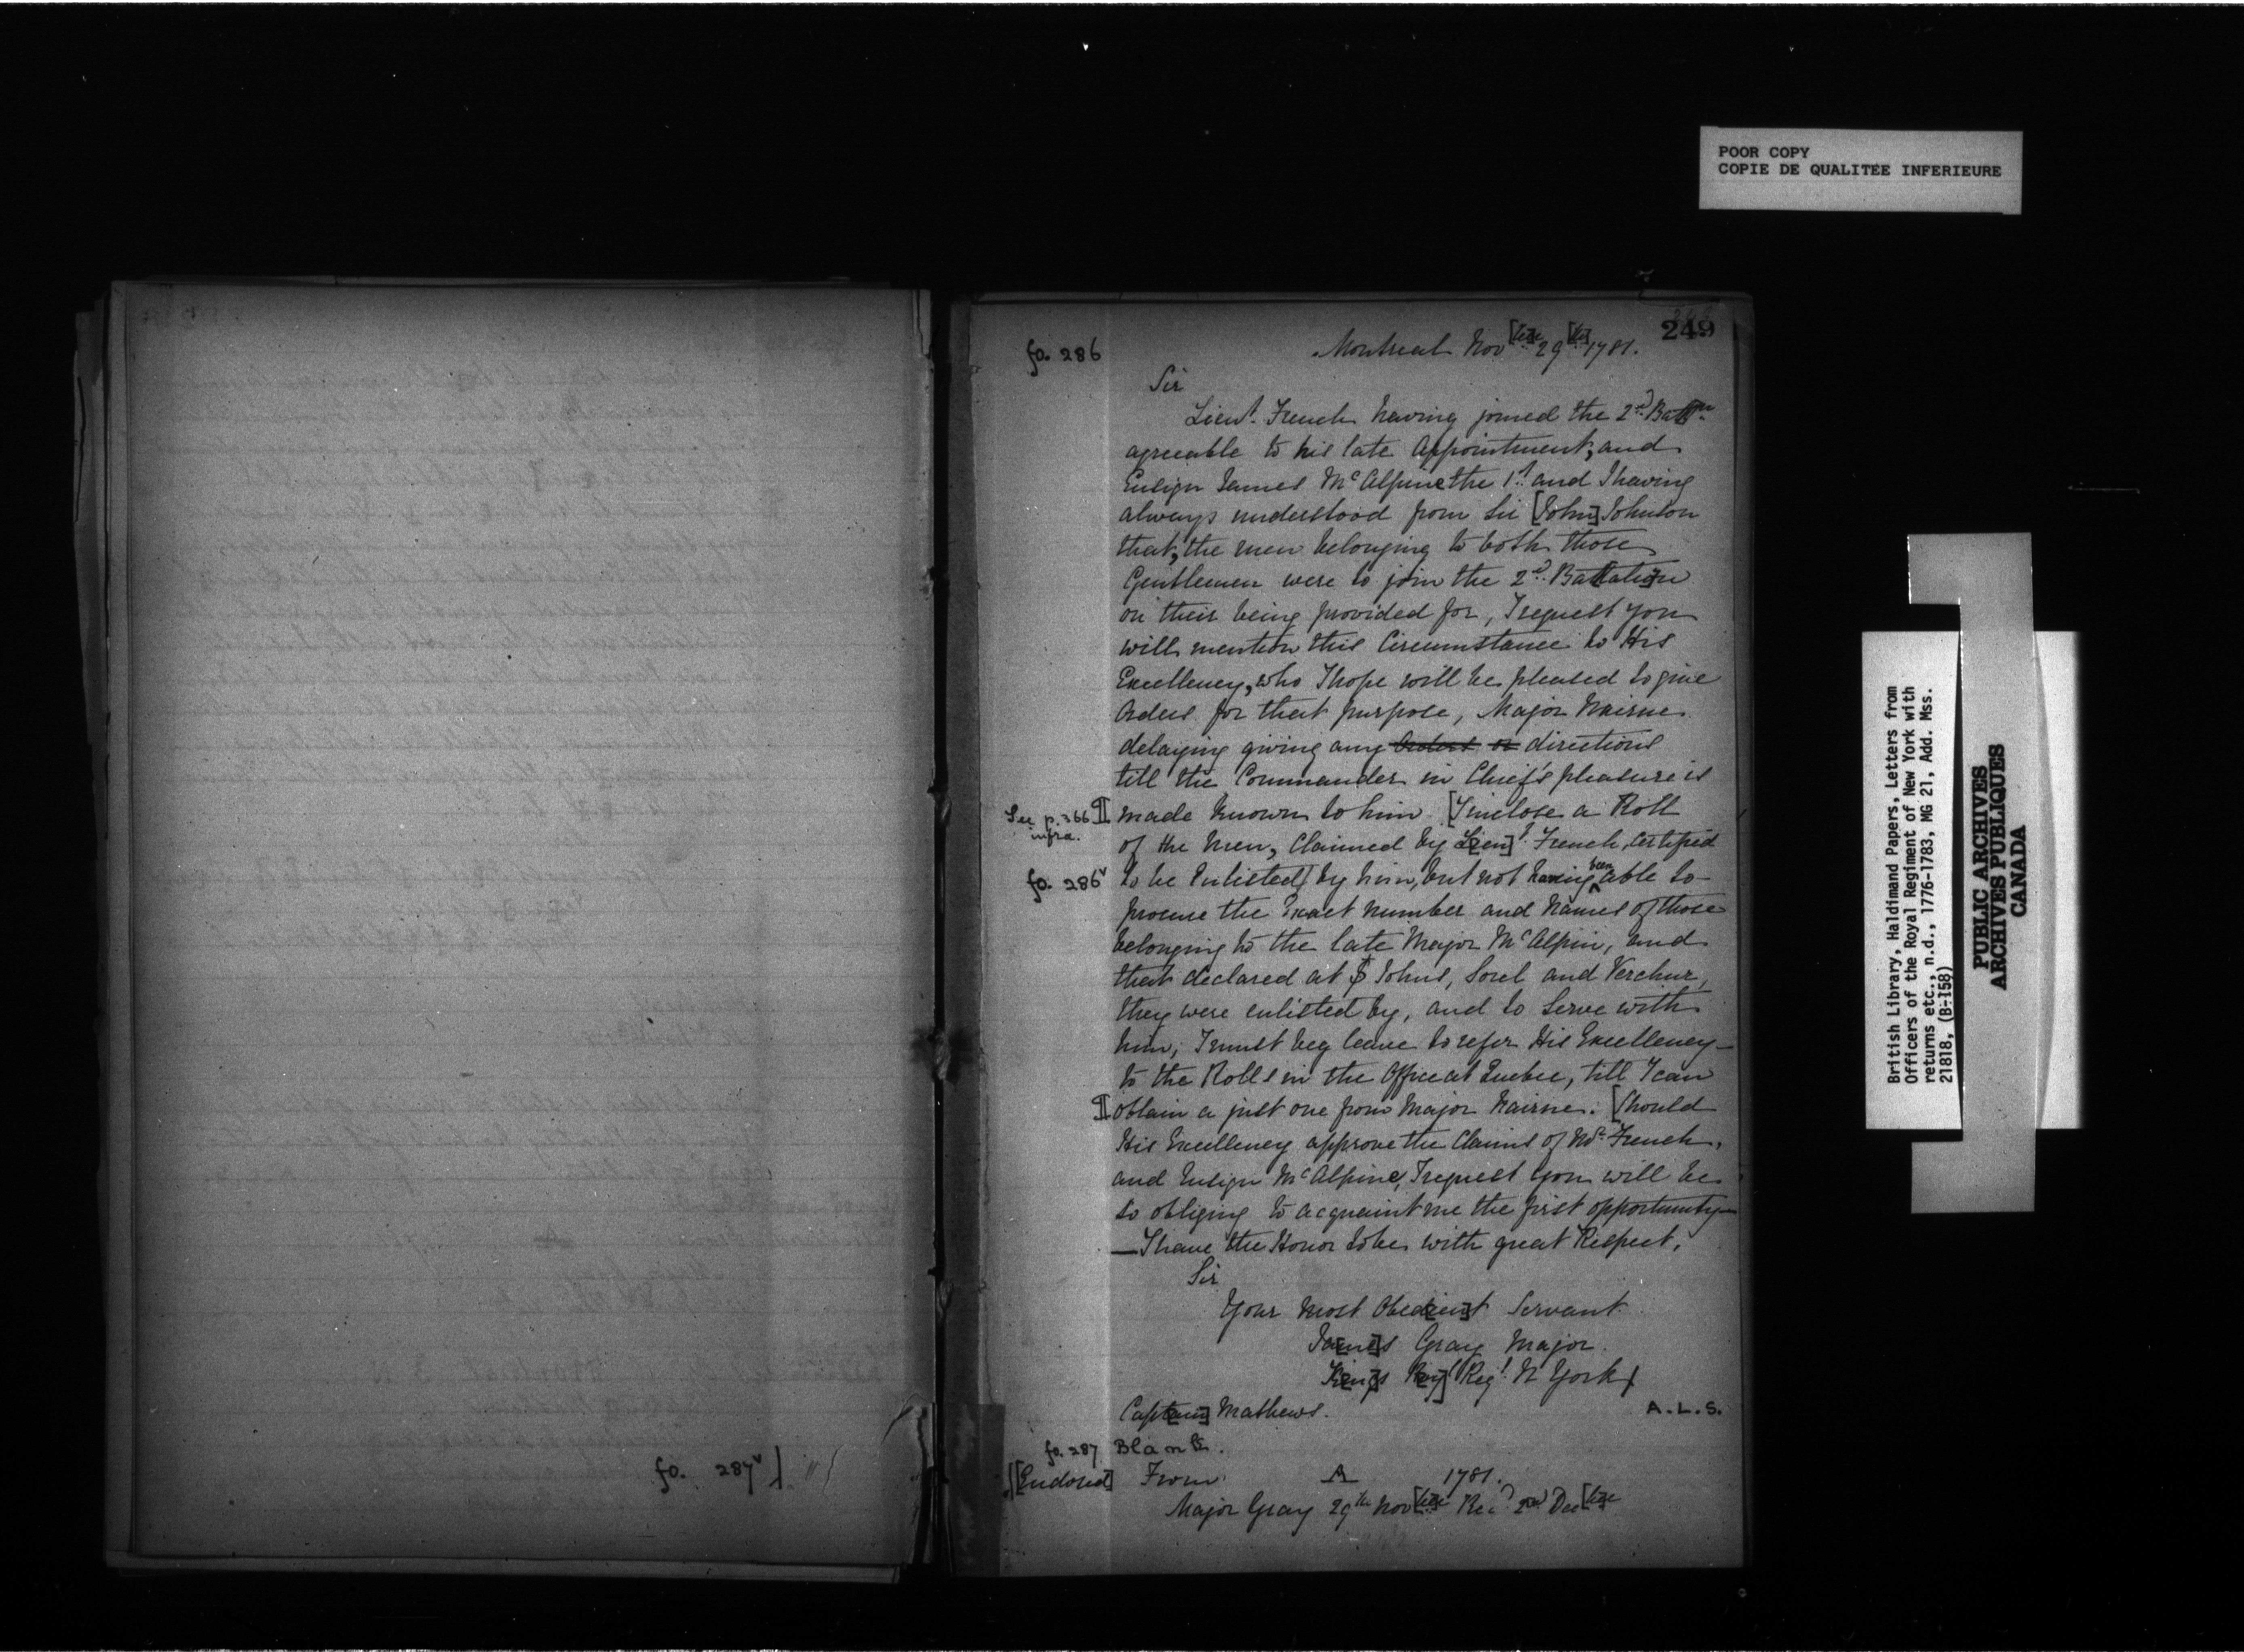 POOR COPY
COPIE DE QUALITÉE INFERIEURE
249
fo. 286
Montreal Nov[bre] 29[th] 1781.
Sir
Lieut. French having joined the 2nd Battn
agreeable to his late Appointment, and
Ensign James McAlpine the 1st and I having
always understood from Sir [John] Johnson
that, the men belonging to both those
Gentlemen were to join the 2d. Battation
on their being provided for, I request you
will mention this Circumstance to His
Excellency, who I hope will be pleased to give
Orders for that purpose, Major Nairne
delaying giving any Orders or directions
till the Commander in Chief's pleasure is
See p. 366 infra. ¶ made known to him [I inclose a Roll
of the Men, Claimed by Lieu]t. French, Certified
fo. 286v to be Enlisted by him, but not having been able to
procure the Exact number and Names of those
belonging to the late Major McAlpin, and
that declared at St Johns, Sorel and Verchur,
they were enlisted by, and to Serve with
him, I must beg leave to refer His Excellency
to the Rolls in the Office at Quebec, till I can
¶ obtain a just one from Major Nairne. [Should
His Excellency approve the Claims of Mr. French,
and Ensign McAlpine, I request you will be
so obliging to acquaint me the first opportunity
—I have the Honor to be with great Respect,
Sir
Your Most Obed[ien]t Servant
Ja[me]s Gray Major
K[ing]s R[oy] Regt. N York
Capt[ain] Mathews.
A.L.S.
fo. 287 Blank.
[Endorsed] From A 1781.
Major Gray 29th Nov[bre] Rec'd 2nd Dec[bre]
fo. 287v
British Library, Haldimand Papers, Letters from
Officers of the Royal Regiment of New York with
returns etc., n.d., 1776-1783, MG 21, Add. Mss.
21818, (B-158)
PUBLIC ARCHIVES
ARCHIVES PUBLIQUES
CANADA